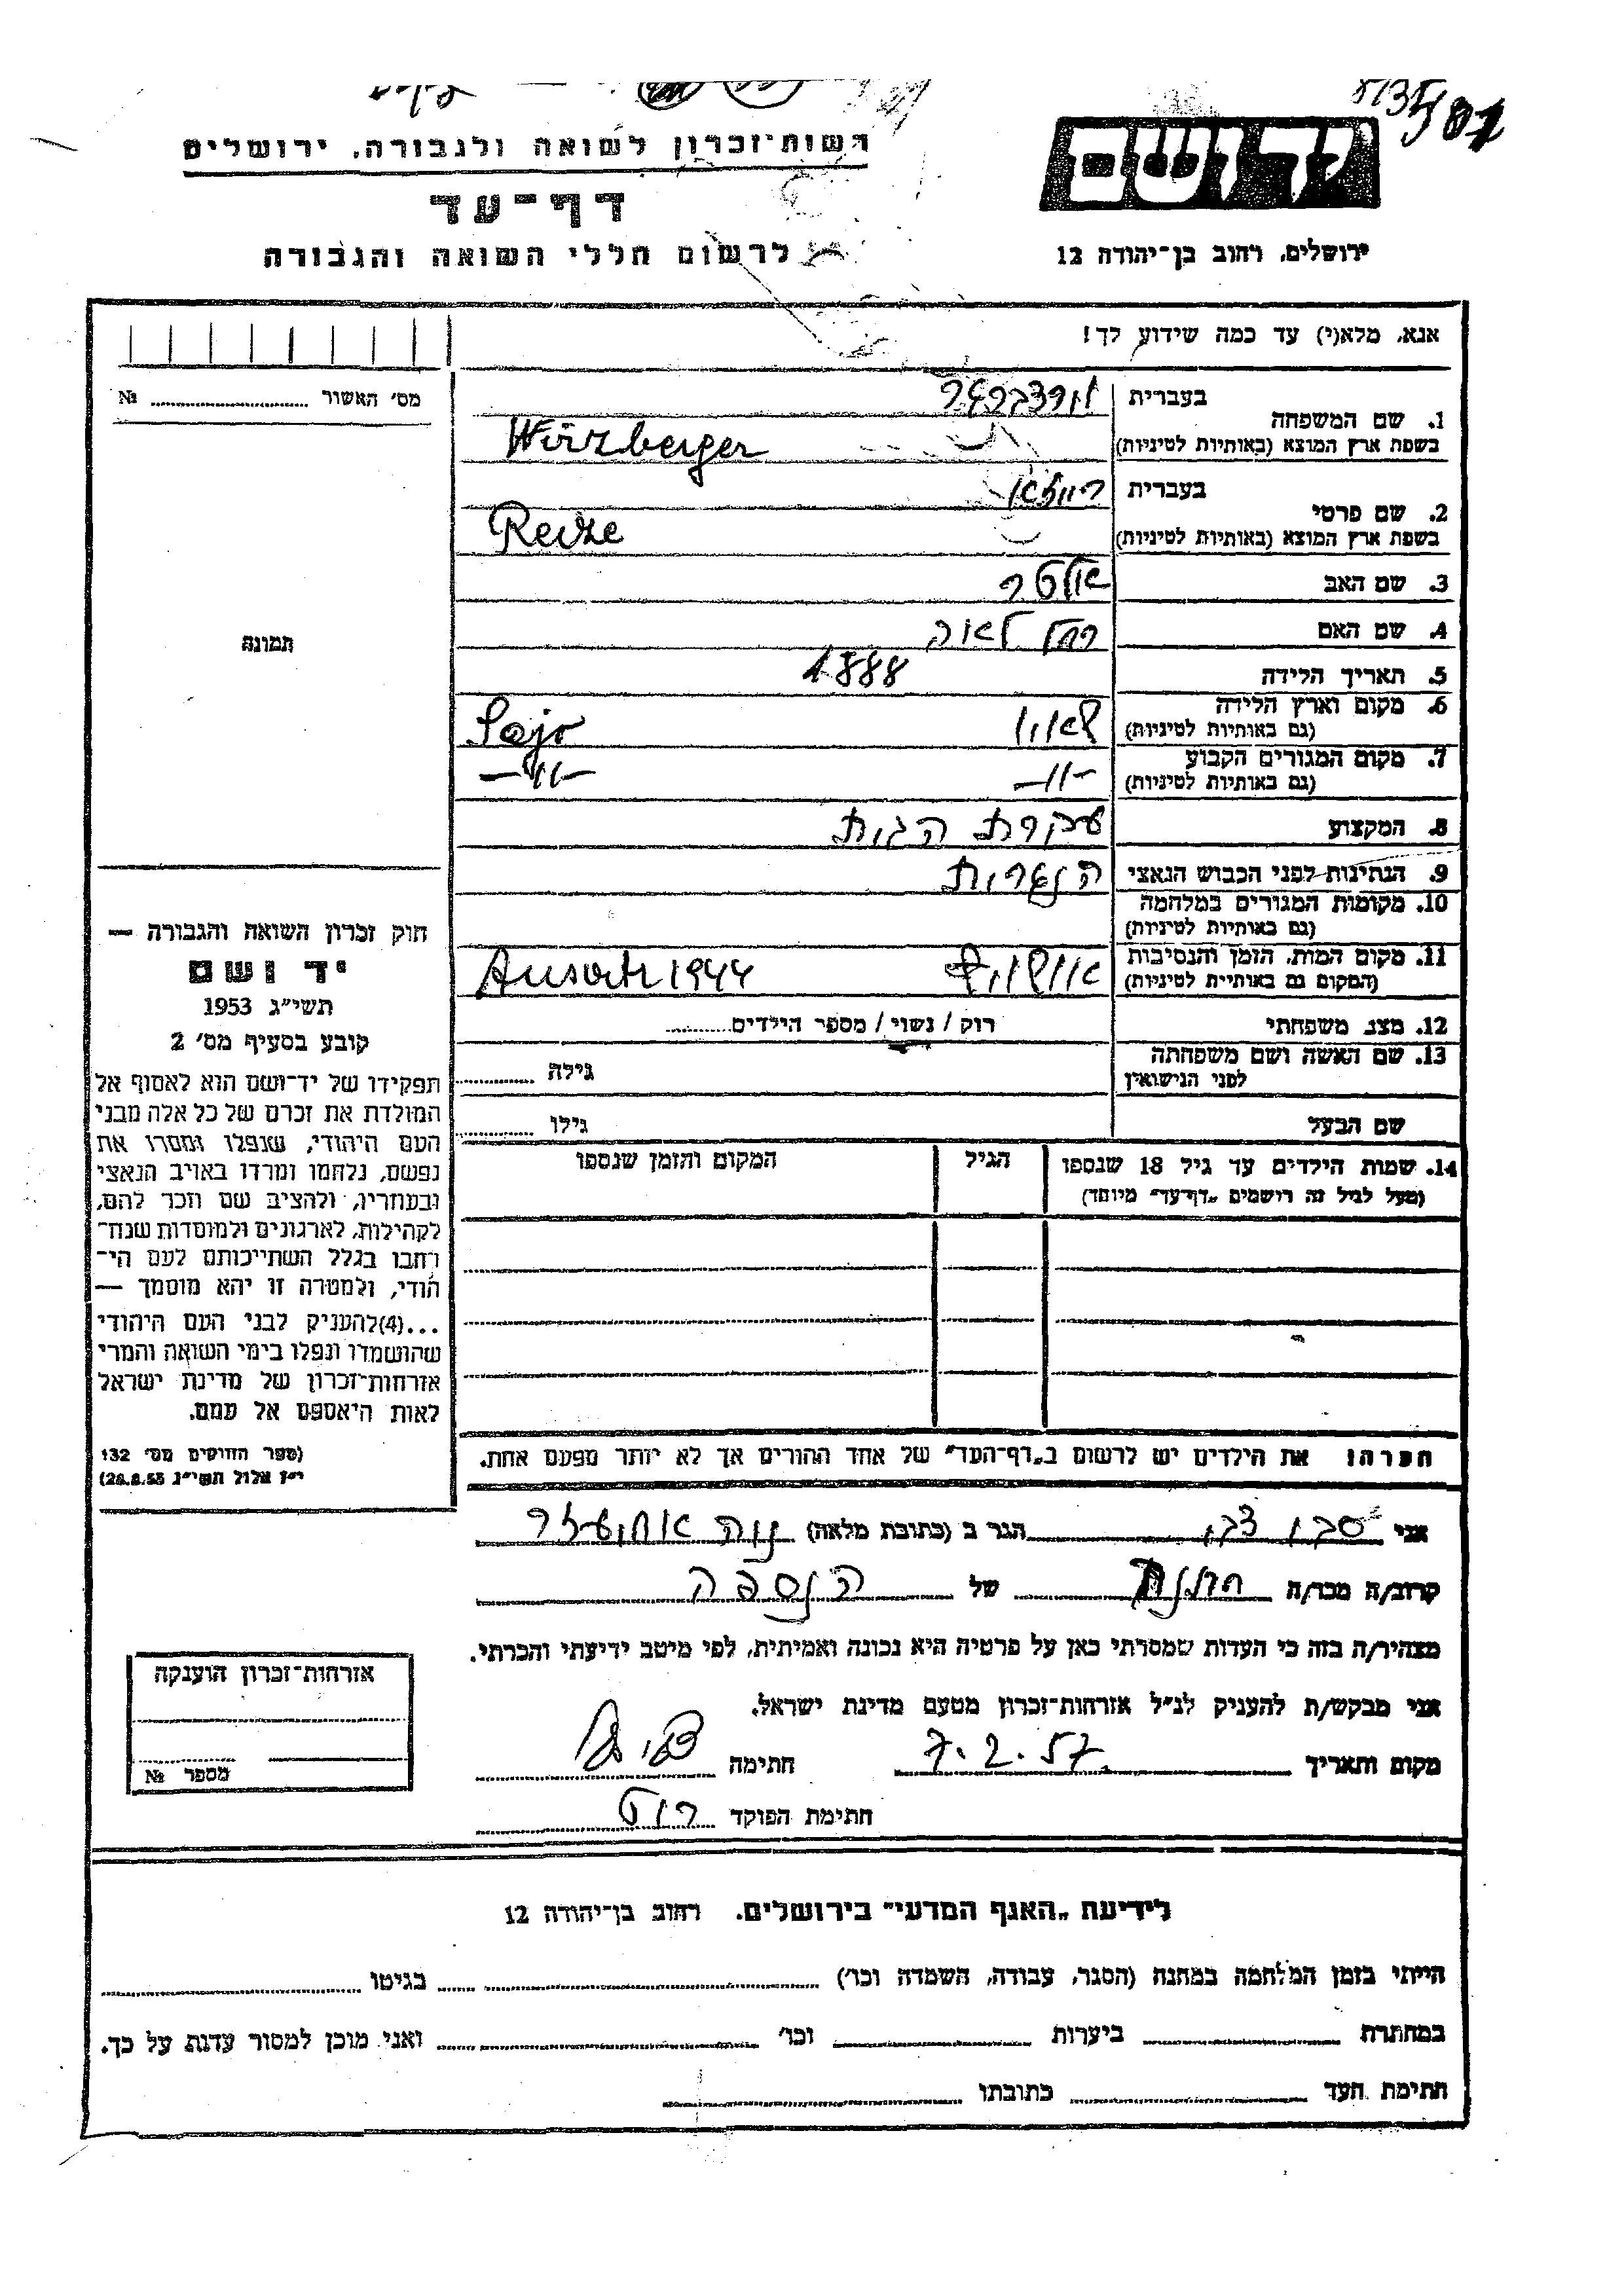 8135/87
רשות־זכרון לשואה ולגבורה, ירושלים
יד ושם
דף־עד
לרשום חללי השואה והגבורה
ירושלים, רחוב בן־יהודה 12
אנא, מלא(י) עד כמה שידוע לך!
מס׳ האשור № 
תמונה
1. שם המשפחה
בעברית וירצברגר
בשפת ארץ המוצא (באותיות לטיניות) Würzberger
2. שם פרטי
בעברית
בשפת ארץ המוצא (באותיות לטיניות) Reize
3. שם האב אלטר
4. שם האם רחל לאה
5. תאריך הלידה 1888
6. מקום וארץ הלידה
(גם באותיות לטיניות) Sajo
7. מקום המגורים הקבוע —״—
(גם באותיות לטיניות) —״—
8. המקצוע עקרת הבית
9. הנתינות לפני הכבוש הנאצי הונגרית
10. מקומות המגורים במלחמה
(גם באותיות לטיניות)
11. מקום המות, הזמן והנסיבות
(המקום גם באותיית לטיניות) 1944
12. מצב משפחתי רוק / נשוי / מספר הילדים
13. שם האשה ושם משפחתה
לפני הנישואין גילה
שם הבעל גילו
14. שמות הילדים עד גיל 18 שנספו הגיל המקום והזמן שנספו
(מעל לגיל זה רושמים „דף־עד״ מיוחד)
חוק זכרון השואה והגבורה —
יד ושם
תשי״ג 1953
קובע בסעיף מס׳ 2
תפקידו של יד־ושם הוא לאסוף אל
המולדת את זכרם של כל אלה מבני
העם היהודי, שנפלו ומסרו את
נפשם, נלחמו ומרדו באויב הנאצי
ובעוזריו, ולהציב שם וזכר להם,
לקהילות, לארגונים ולמוסדות שנח־
רהבו בגלל השתייכותם לעם הי־
הודי, ולמטרה זו יהא מוסמך —
...(4)להעניק לבני העם היהודי
שהושמדו ונפלו בימי השואה והמרי
אזרחות־זכרון של מדינת ישראל
לאות היאספם אל עמם.
(ספר החוקים מס׳ 132
י״ז אלול תשי״ג 28.8.53)
הערה! את הילדים יש לרשום ב„דף־העד״ של אחד ההורים אך לא יותר מפעם אחת.
אני הגר ב (כתובת מלאה)
קרוב/ה מכר/ה של הנספה
מצהיר/ה בזה כי העדות שמסרתי כאן על פרטיה היא נכונה ואמיתית, לפי מיטב ידיעתי והכרתי.
אני מבקש/ת להעניק לנ״ל אזרחות־זכרון מטעם מדינת ישראל.
מקום ותאריך 7.2.57 חתימה
חתימת הפוקד
אזרחות־זכרון הוענקה
מספר №
לידיעת „האגף המדעי״ בירושלים. רחוב בן־יהודה 12
הייתי בזמן המלחמה במחנה (הסגר, עבודה, השמדה וכו׳) בגיטו
במחתרת ביערות וכו׳ ואני מוכן למסור עדות על כך.
חתימת העד כתובתו